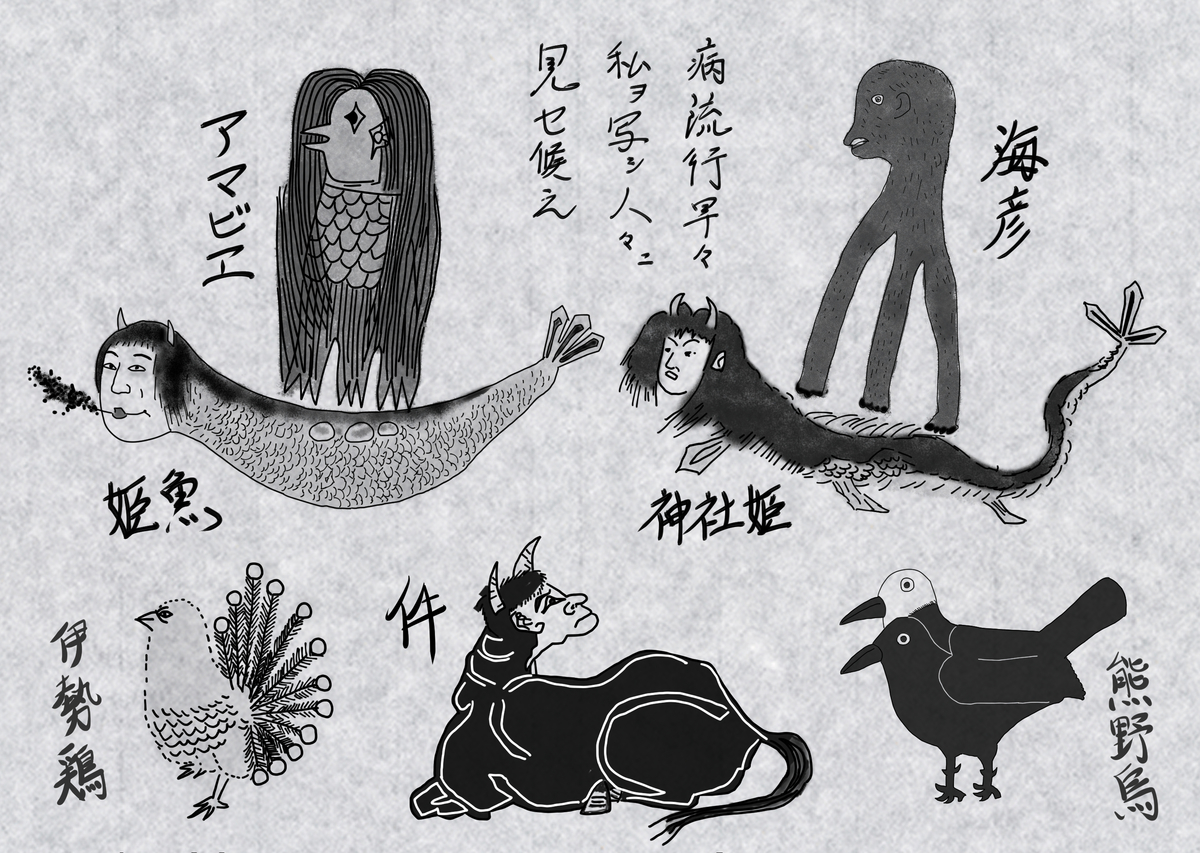 病流行早々
私ヲ写シ人々ニ
見セ候え
海彦
アマビヱ
神社姫
姫魚
熊野烏
件
伊勢鶏